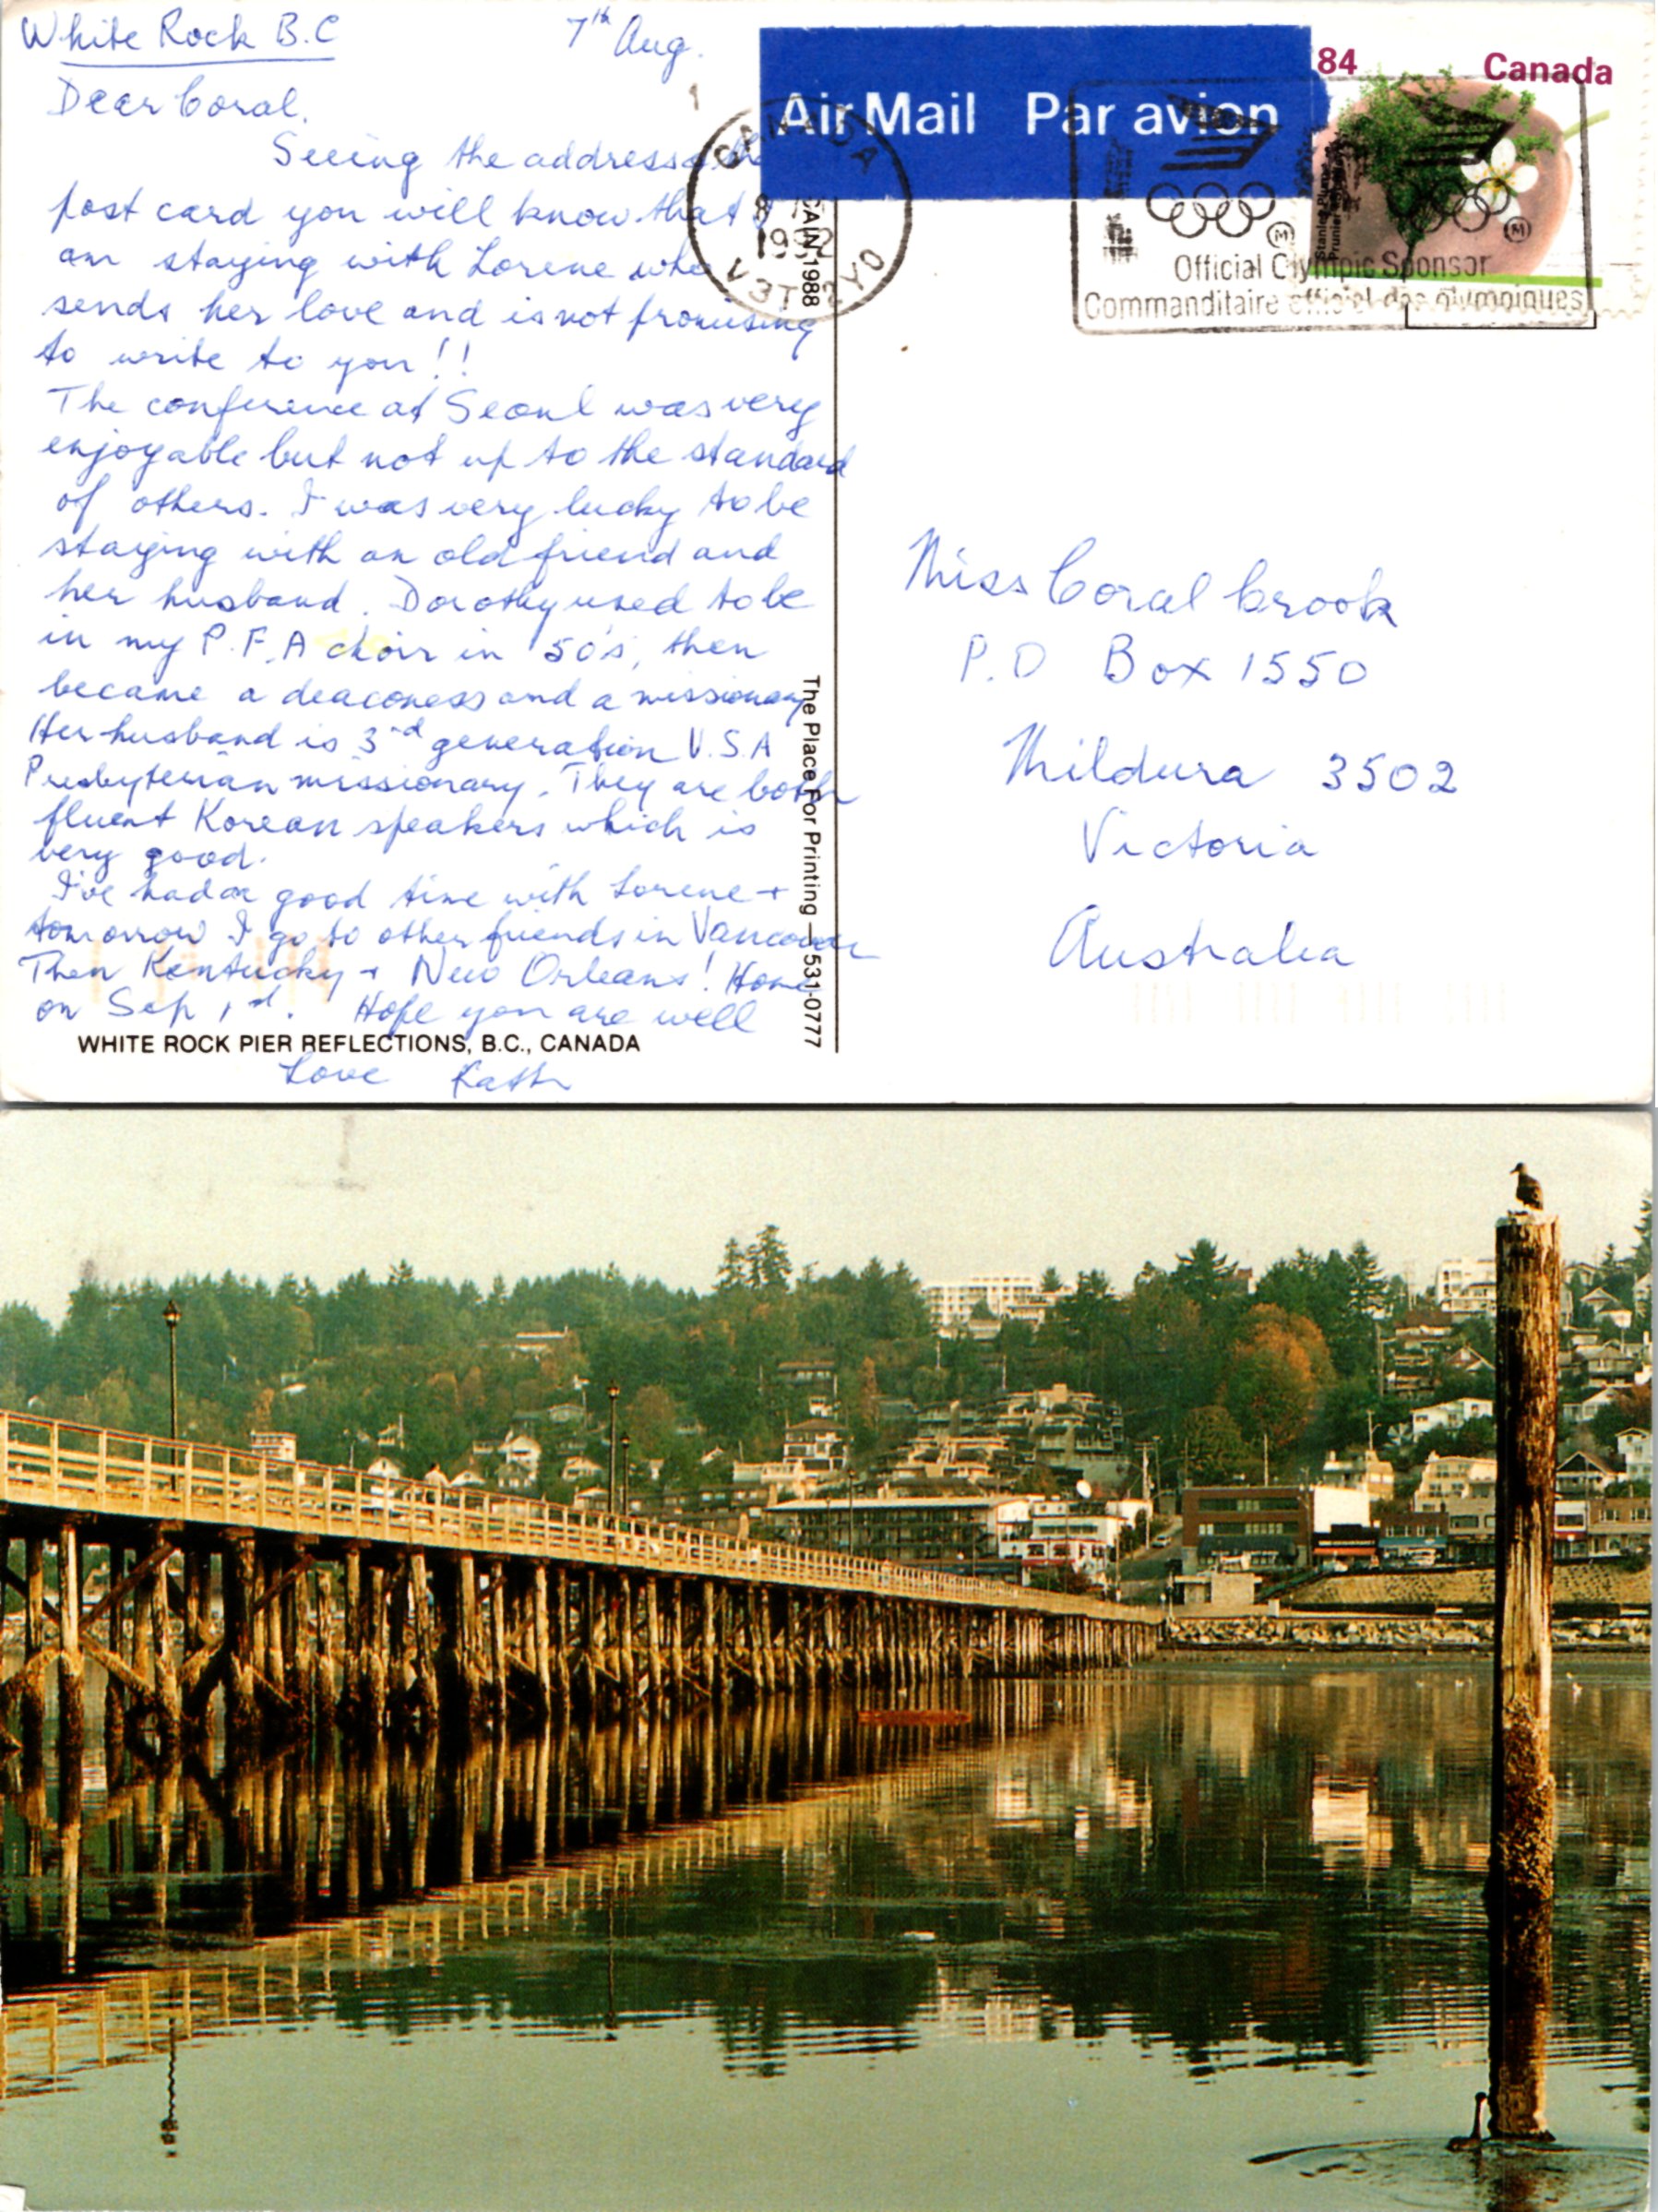 White Rock B.C
7th Aug.
Dear Coral,
Seeing the address on the
post card you will know that I
am staying with Lorene who
sends her love and is not promising
to write to you!!
The conference at Seoul was very
enjoyable but not up to the standard
of others. I was very lucky to be
staying with an old friend and
her husband. Dorothy used to be
in my P.F.A choir in '50's, then
became a deaconess and a missionary
Her husband is 3rd generation U.S.A
Presbyterian missionary. They are both
fluent Korean speakers which is
very good.
I've had a good time with Lorene +
tomorrow I go to other friends in Vancouver
Then Kentucky + New Orleans! Home
on Sep 1st. Hope you are well
WHITE ROCK PIER REFLECTIONS, B.C., CANADA
Love Kath
The Place For Printing — 531-0777
CAIN, 1988
Air Mail Par avion
84 Canada
CANADA
1992
V3T 2Y0
Official Olympic Sponsor
Commanditaire officiel des olympiques
Miss Coral Crook
P.O Box 1550
Mildura 3502
Victoria
Australia